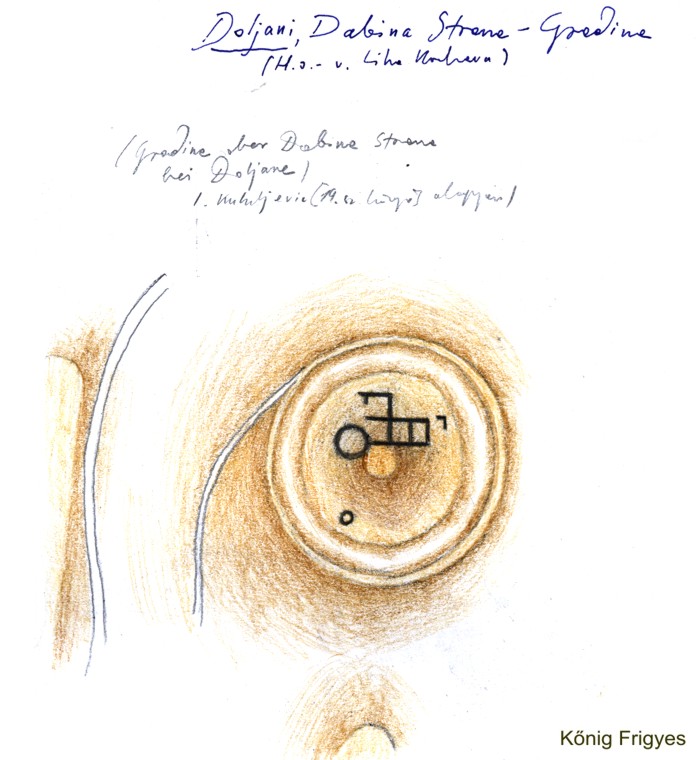 Doljani, Dabina Strane - Gradina
(H.o. - v. Lika Krbava)
(Gradina ober Dabina Strane
bei Doljane)
I. Kukuljević [19. sz. közepe] alapján)
Kőnig Frigyes